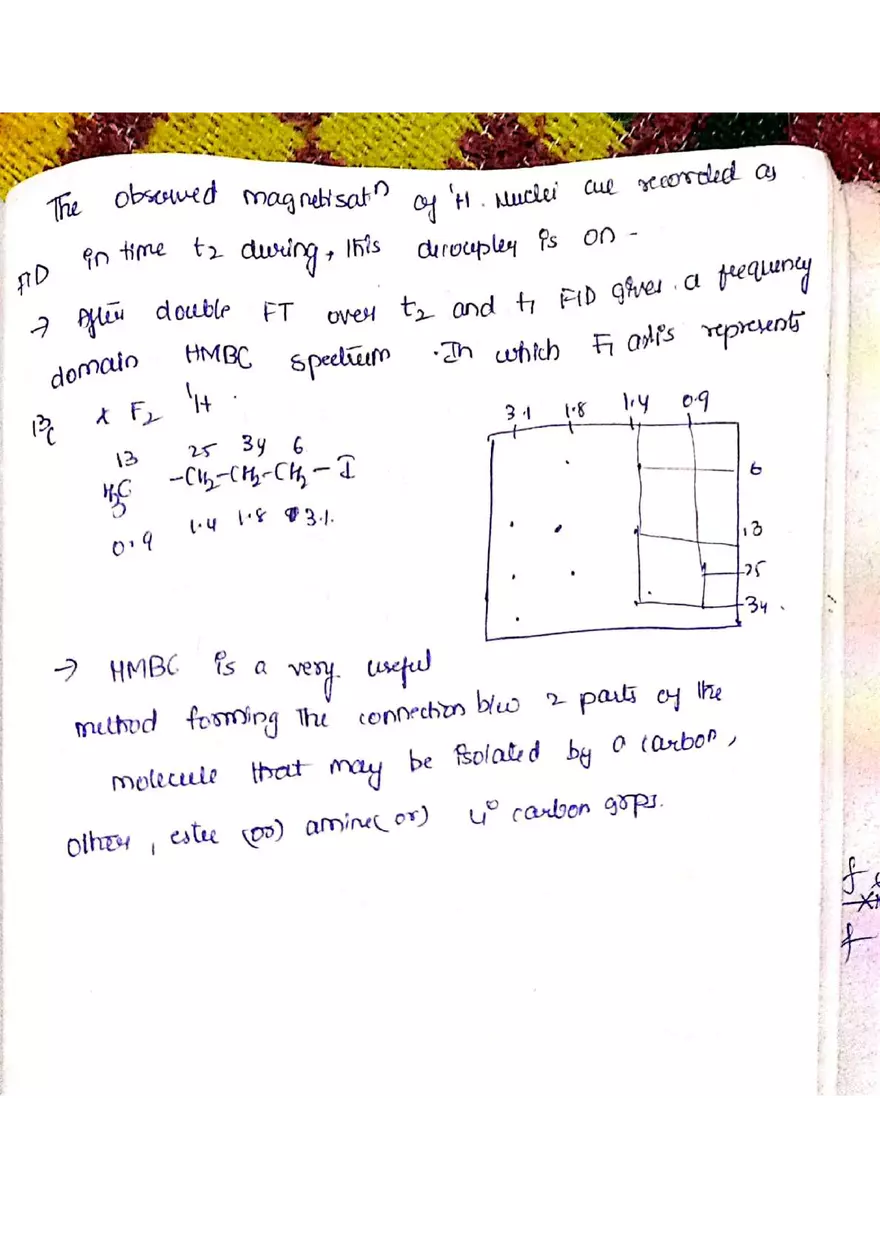 The observed magnetisatⁿ of ¹H. Nuclei are recorded as
FID in time t₂ during, this decoupler is on -
→ After double FT over t₂ and t₁ FID gives a frequency
domain HMBC spectrum. In which F₁ axis represents
¹³C & F₂ ¹H.
3.1 1.8 1.4 0.9
13 25 34 6
H₃C -CH₂-CH₂-CH₂-I
0.9 1.4 1.8 3.1.
6
13
25
34.
→ HMBC is a very useful
method forming The connection b/w 2 parts of the
molecule that may be isolated by a carbon,
other, ester (or) amine (or) 4° carbon grps.